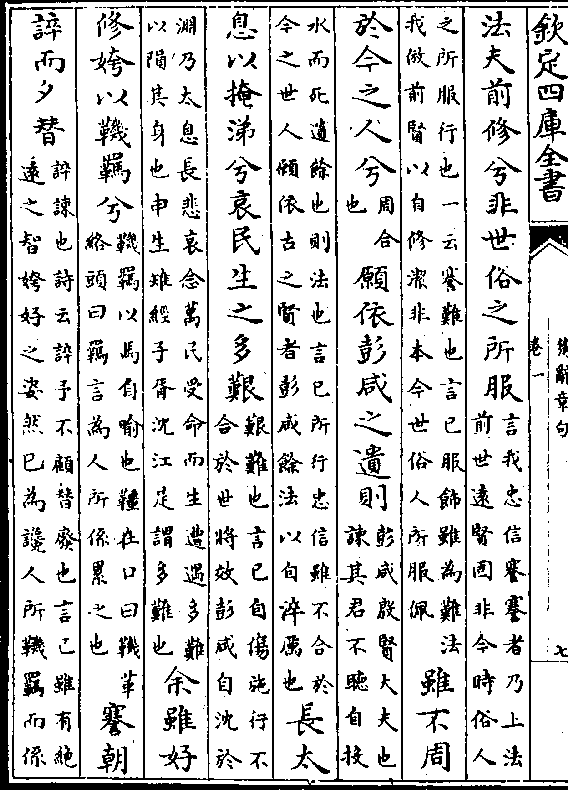 欽定四庫全書
楚辭章句
卷一
七
法夫前修兮非世俗之所服
言我忠信謇謇者乃上法
前世遠賢固非今時俗人
之所服行也一云謇難也言已服飾雖為難法
我倣前賢以自修潔非本今世俗人所服佩
雖不周
於今之人兮
周合
也
願依彭咸之遺則
彭咸殷賢大夫也
諫其君不聽自投
水而死遺餘也則法也言已所行忠信雖不合於
今之世人願依古之賢者彭咸餘法以自淬厲也
長太
息以掩涕兮哀民生之多艱
艱難也言已自傷施行不
合於世將效彭咸自沈於
淵乃太息長悲哀念萬民受命而生遭遇多難
以隕其身也申生雉經子胥沈江是謂多難也
余雖好
修姱以鞿羈兮
鞿羈以馬自喻也韁在口曰鞿革
絡頭曰羈言為人所係累之也
謇朝
誶而夕替
誶諫也詩云誶予不顧替廢也言已雖有絶
遠之智姱好之姿然已為讒人所鞿羈而係